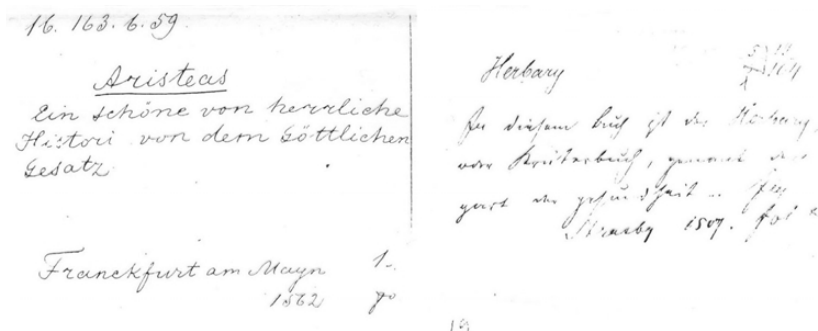 16. 163. 6. 59.
Aristeas
Ein schöne von herrliche
Histori von dem Göttlichen
Gesatz
Franckfurt am Mayn 1.
1562
Herbary
In diesem buch ist der Herbary,
oder Kruterbuch, genant der
gart der gesundheit ..
Strasby 1507. fol
19.